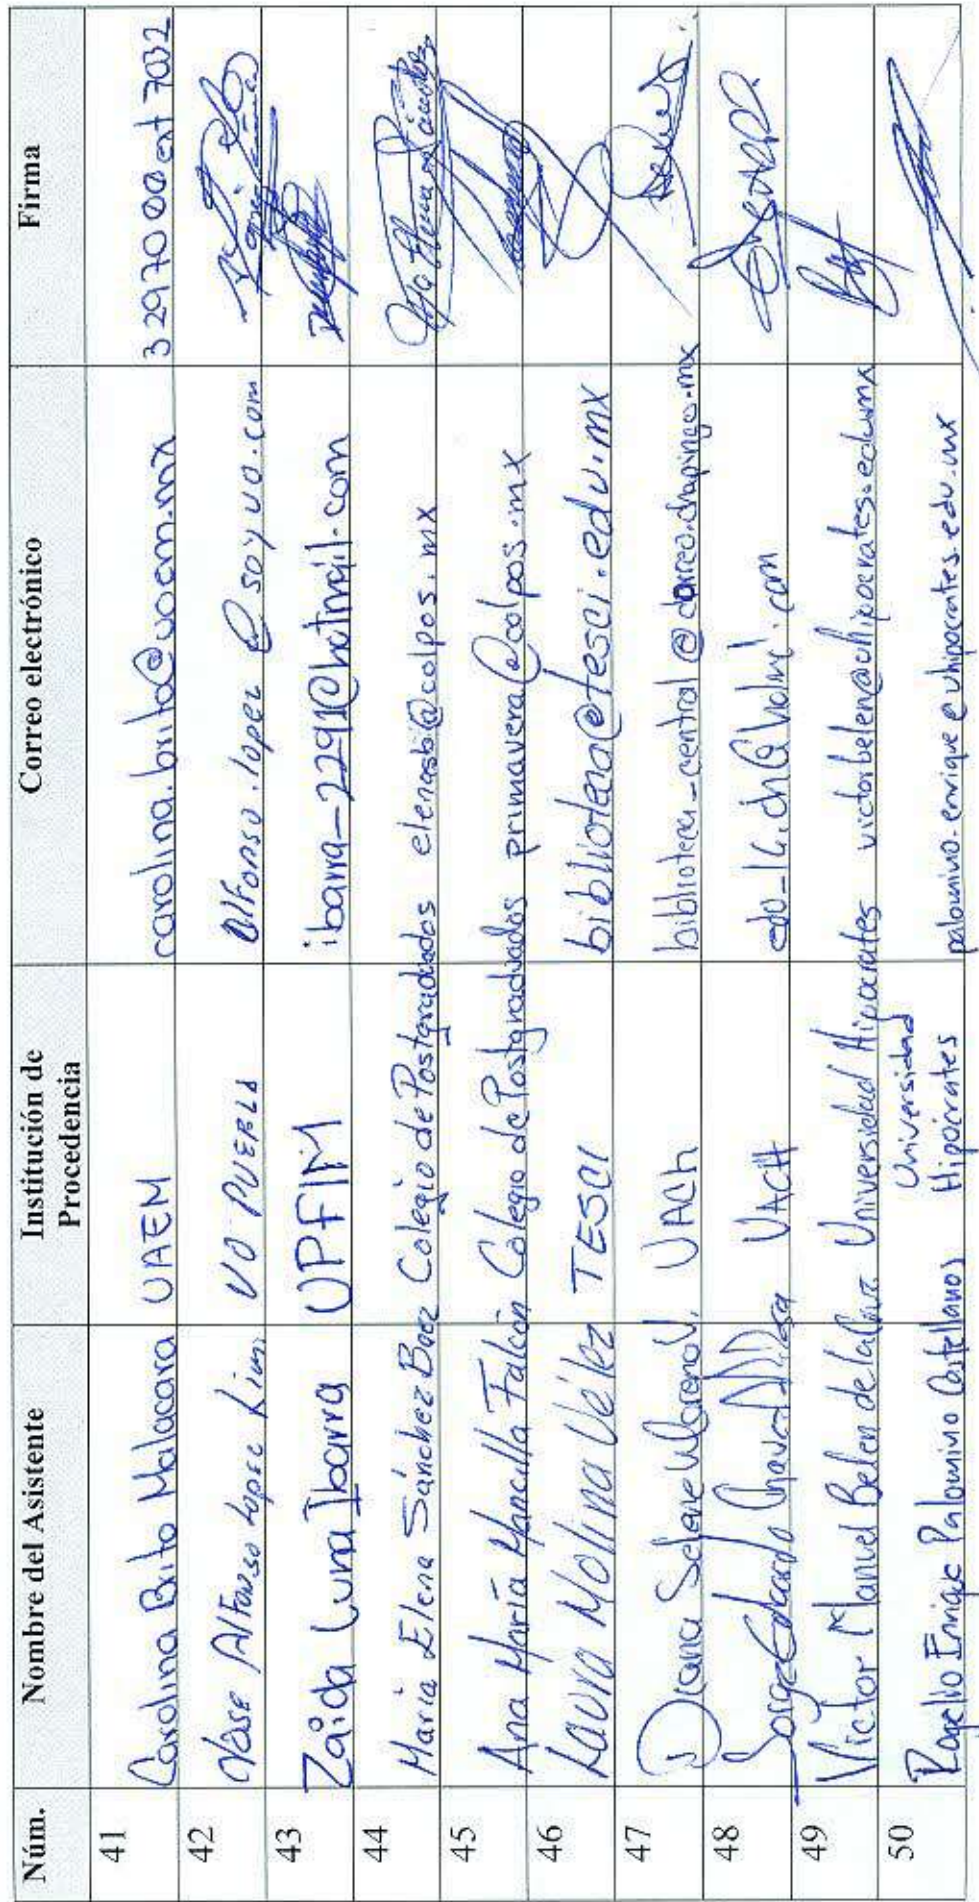 Núm. Nombre del Asistente Institución de Procedencia Correo electrónico Firma
41 Carolina Brito Malacara UAEM carolina.brito@uaem.mx 3 29 70 00 ext 7032
42 José Alfonso López Limón UO PUEBLA alfonso.lopez@soyuo.com
43 Zaida Luna Ibarra UPFIM ibarra_2291@hotmail.com
44 María Elena Sánchez Baez Colegio de Postgraduados elenasb@colpos.mx
45 Ana María Mancilla Falcón Colegio de Postgraduados primavera@colpos.mx
46 Laura Molina Vélez TESCI biblioteca@tesci.edu.mx
47 Diana UACh biblioteca_central@correo.chapingo.mx
48 Jorge Eduardo UACH
49 Victor Manuel Belen de la Cruz Universidad Hipocrates victorbelen@uhipocrates.edu.mx
50 Rogelio Enrique Palomino Castellanos Universidad Hipócrates palomino.enrique@uhipocrates.edu.mx